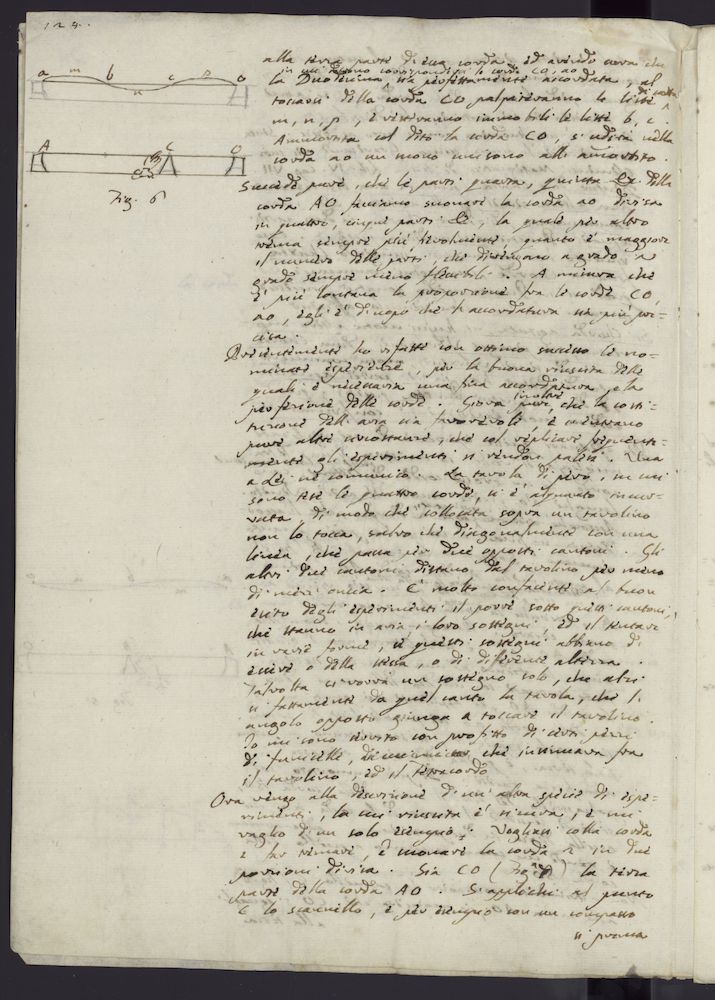 124.
a m b n c p o
A C O
Fig. 6
alla terza parte di essa corda, ed avendo cura che
in cui devono corrispondersi le corde CO, ao
la Duodecima sia perfettamente accordata, al
toccarsi della corda CO palpiteranno le liste di carta
m, n, p, e resteranno immobili le liste b, c.
Ammorzata col dito la corda CO, s'udirà nella
corda ao un suono unisono allo smorzato.
Succede pure, che le parti quarta, quinta &c. della
corda AO facciano suonare la corda ao divisa
in quattro, cinque parti &c., la quale per altro
trema sempre più fievolmente, quanto è maggiore
il numero delle parti, che divengono a grado a
grado sempre meno flessibili. A misura che
è più lontana la proporzione fra le corde CO,
ao, egli è d'uopo che l'accordatura sia più pre-
cisa.
Recentemente ho rifatte con ottimo successo le no-
minate esperienze, per la buona riuscita delle
quali è necessaria una fina accordatura, e la
perfezione delle corde. Giova inoltre, che la costi-
tuzione dell'aria sia favorevole, e c'entrano
pure altre circostanze, che col replicare frequente-
mente gli esperimenti si rendon palesi. Una
a Lei ne comunico. La tavola di pero, in cui
sono tese le quattro corde, si è alquanto incur-
vata di modo che collocata sopra un tavolino
non lo tocca, salvo che diagonalmente con una
linea, che passa per due opposti cantoni. Gli
altri due cantoni distano dal tavolino per meno
di mezz'oncia. È molto conferente al buon
esito degli esperimenti il porre sotto questi cantoni,
che stanno in aria i loro sostegni, ed il tentare
in varie forme, se questi sostegni abbiano di
essere o della stessa, o di differente altezza.
Talvolta ci vorrà un sostegno solo, che alzi
sì fattamente da quel canto la tavola, che l'
angolo opposto giunga a toccare il tavolino.
Io mi sono servito con profitto di certi pezzi
di funicelle, che insinuava fra
il tavolino, ed il Tetracordo.
Ora vengo alla descrizione d'un'altra specie di espe-
rimenti, la cui riuscita è sicura, e mi
vaglio d'un solo esempio. Vogliasi colla corda
far tremare, e suonare la corda in due
porzioni divisa. Sia CO (Fig. 6) la terza
parte della corda AO. S'applichi al punto
C lo scannello, e per esempio con un compasso
si prema